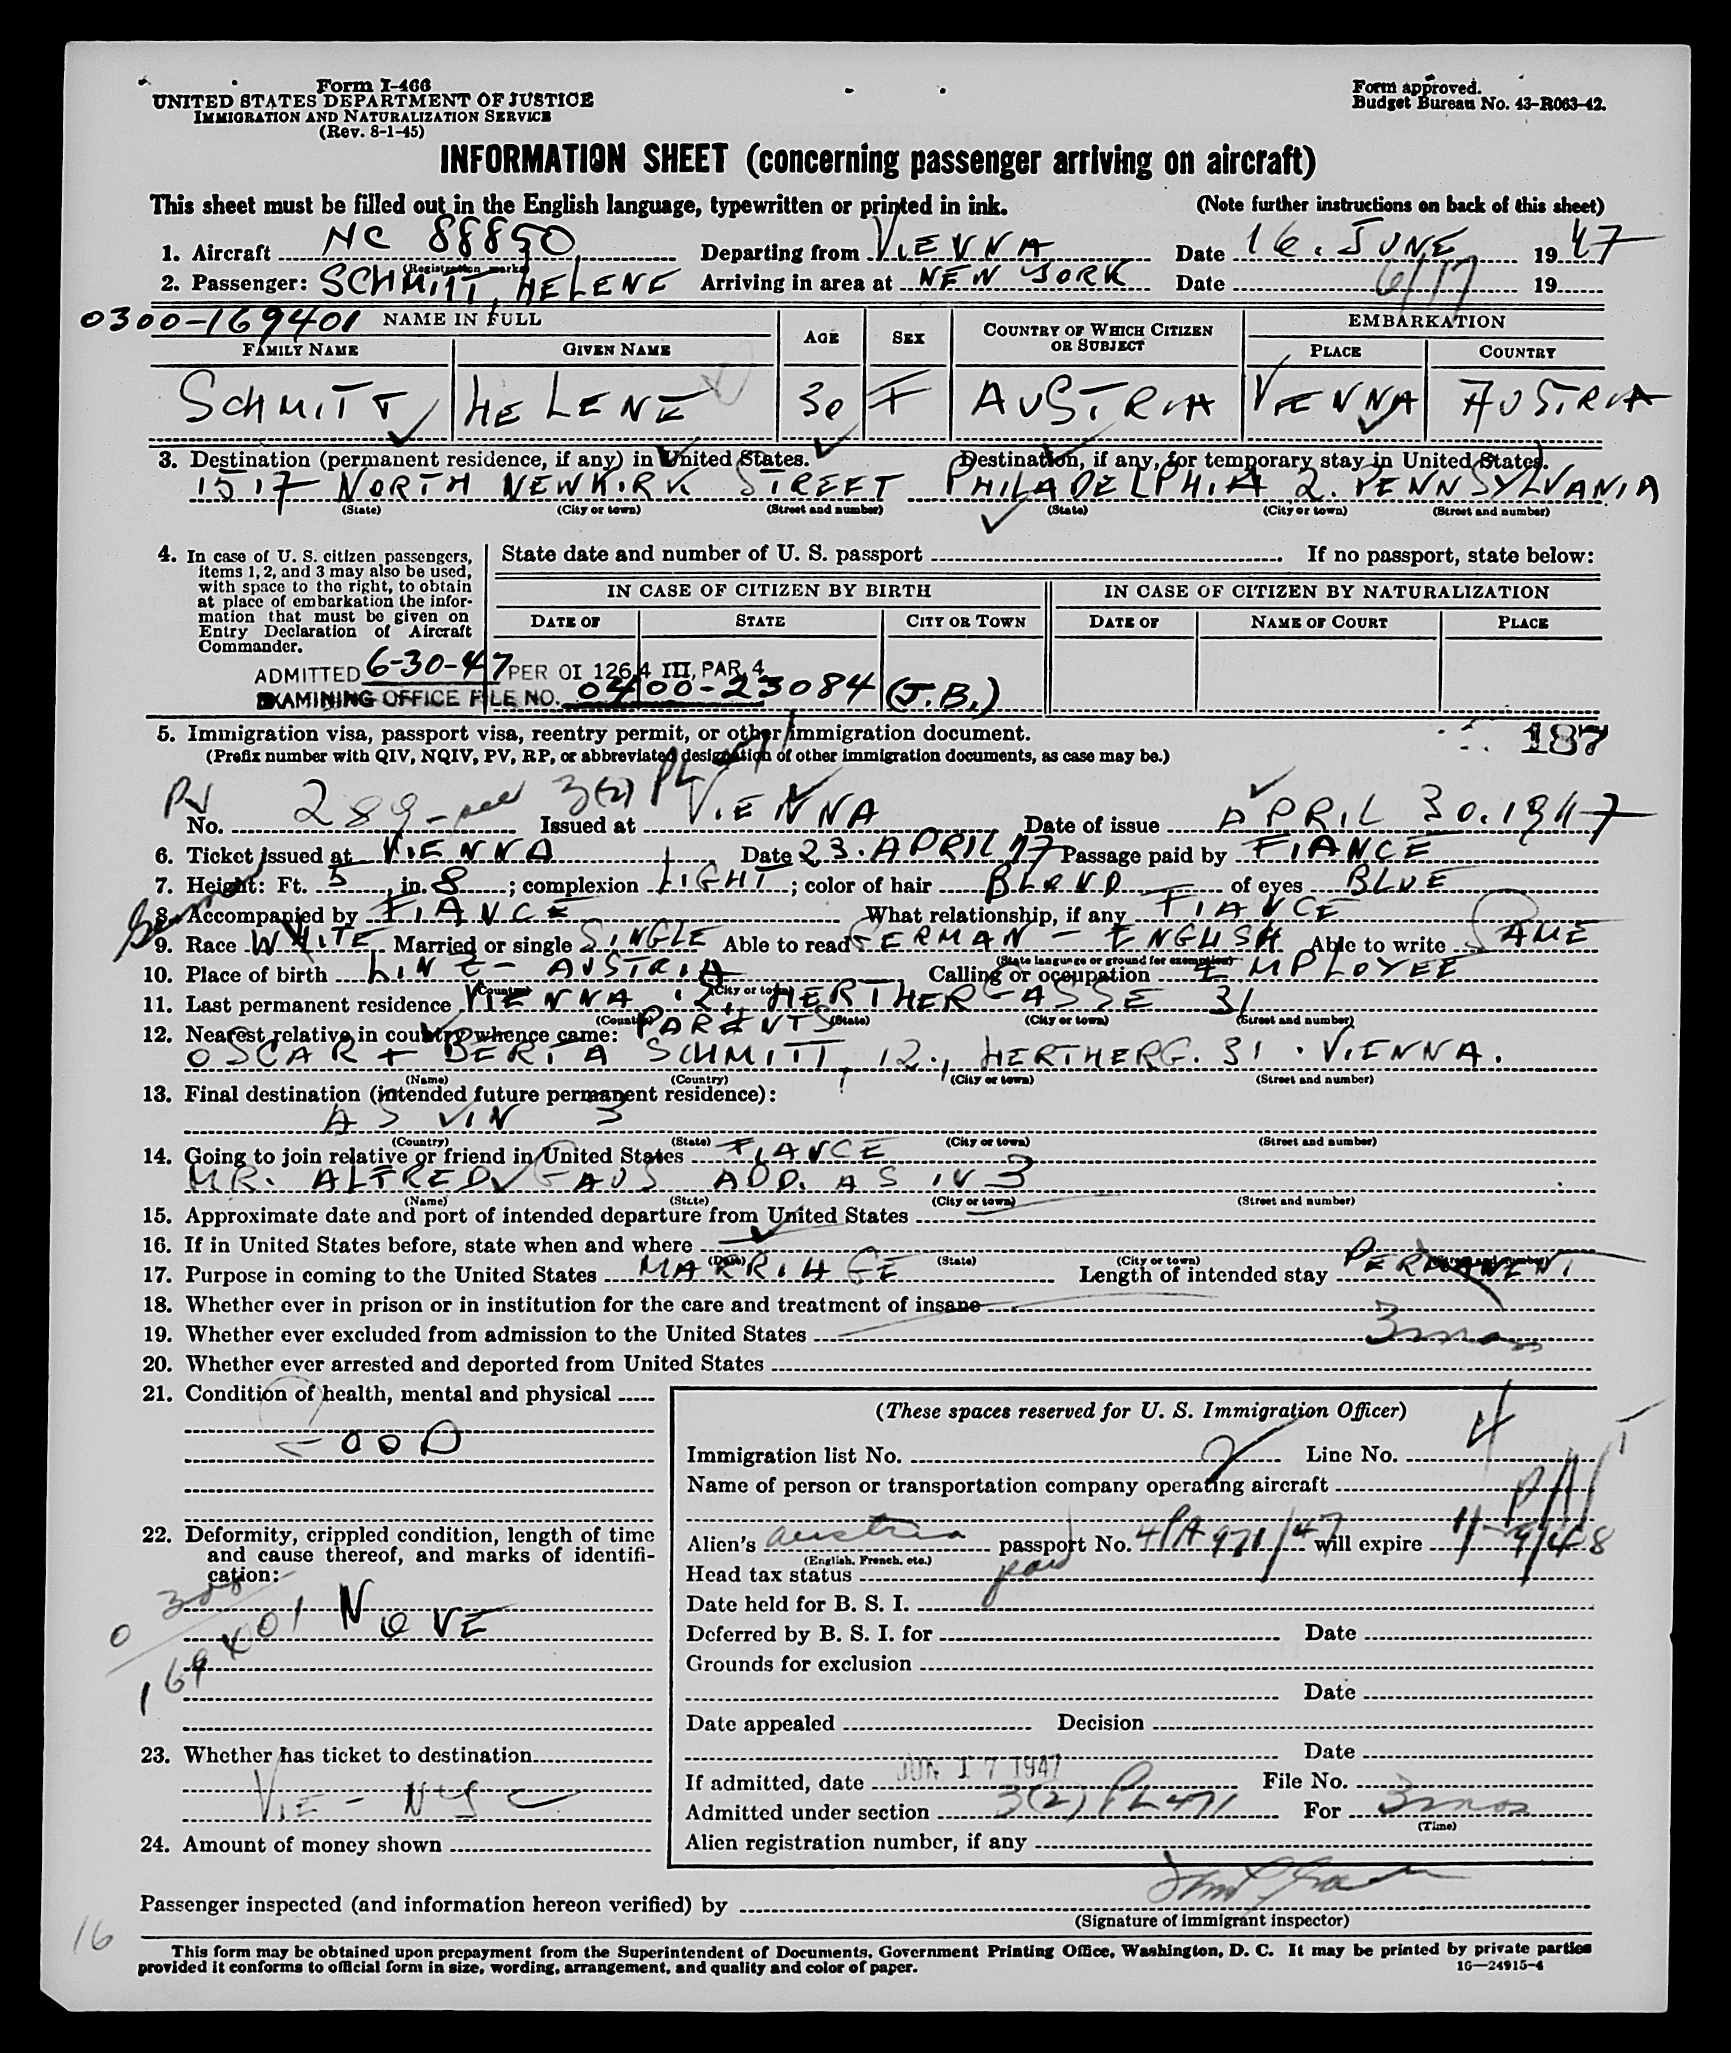 Form I-466
UNITED STATES DEPARTMENT OF JUSTICE
IMMIGRATION AND NATURALIZATION SERVICE
(Rev. 8-1-45)
Form approved.
Budget Bureau No. 43-R063-42.
INFORMATION SHEET (concerning passenger arriving on aircraft)
This sheet must be filled out in the English language, typewritten or printed in ink. (Note further instructions on back of this sheet)
1. Aircraft NC 88850 Departing from VIENNA Date 16. JUNE 1947
(Registration marks)
2. Passenger: SCHMITT, HELENE Arriving in area at NEW YORK Date 6/17 19
0300-169401 NAME IN FULL AGE SEX COUNTRY OF WHICH CITIZEN OR SUBJECT EMBARKATION
FAMILY NAME GIVEN NAME PLACE COUNTRY
SCHMITT HELENE 30 F AUSTRIA VIENNA AUSTRIA
3. Destination (permanent residence, if any) in United States. Destination, if any, for temporary stay in United States.
1517 NORTH NEWKIRK STREET PHILADELPHIA 2. PENNSYLVANIA
(State) (City or town) (Street and number) (State) (City or town) (Street and number)
4. In case of U. S. citizen passengers, items 1, 2, and 3 may also be used, with space to the right, to obtain at place of embarkation the information that must be given on Entry Declaration of Aircraft Commander.
State date and number of U. S. passport If no passport, state below:
IN CASE OF CITIZEN BY BIRTH IN CASE OF CITIZEN BY NATURALIZATION
DATE OF STATE CITY OR TOWN DATE OF NAME OF COURT PLACE
ADMITTED 6-30-47 PER OI 126.4 III, PAR. 4
EXAMINING OFFICE FILE NO. 0400-23084 (J.B.)
5. Immigration visa, passport visa, reentry permit, or other immigration document. 187
(Prefix number with QIV, NQIV, PV, RP, or abbreviated designation of other immigration documents, as case may be.)
PV
No. 289 3(2) PL 471 Issued at VIENNA Date of issue APRIL 30. 1947
6. Ticket issued at VIENNA Date 23. APRIL 47 Passage paid by FIANCE
7. Height: Ft. 5, in. 8; complexion LIGHT; color of hair BLOND of eyes BLUE
8. Accompanied by FIANCE What relationship, if any FIANCE
German
9. Race WHITE Married or single SINGLE Able to read GERMAN - ENGLISH Able to write SAME
(State language or ground for exemption)
10. Place of birth LINZ - AUSTRIA Calling or occupation EMPLOYEE
(Country) (City or town)
11. Last permanent residence VIENNA 12., HERTHERGASSE 31
(Country) (State) (City or town) (Street and number)
12. Nearest relative in country whence came: PARENTS
OSCAR + BERTA SCHMITT, 12., HERTHERG. 31. VIENNA.
(Name) (Country) (City or town) (Street and number)
13. Final destination (intended future permanent residence):
AS IN 3
(Country) (State) (City or town) (Street and number)
14. Going to join relative or friend in United States FIANCE
MR. ALFRED GAUS ADD. AS IN 3
(Name) (State) (City or town) (Street and number)
15. Approximate date and port of intended departure from United States
16. If in United States before, state when and where
(Date) (State) (City or town) (Street and number)
17. Purpose in coming to the United States MARRIAGE Length of intended stay PERMANENT
18. Whether ever in prison or in institution for the care and treatment of insane
19. Whether ever excluded from admission to the United States 3 mos
20. Whether ever arrested and deported from United States
21. Condition of health, mental and physical
GOOD
22. Deformity, crippled condition, length of time and cause thereof, and marks of identification:
0 300
169401
NONE
23. Whether has ticket to destination
VIE - NYC
24. Amount of money shown
(These spaces reserved for U. S. Immigration Officer)
Immigration list No. 2 Line No. 4
Name of person or transportation company operating aircraft PAA
Alien's Austria passport No. 4PA 971/47 will expire 4-9/48
(English, French, etc.)
Head tax status paid
Date held for B. S. I.
Deferred by B. S. I. for Date
Grounds for exclusion
Date
Date appealed Decision
Date
If admitted, date JUN 17 1947 File No.
Admitted under section 3(2) PL 471 For 3 mos
(Time)
Alien registration number, if any
Passenger inspected (and information hereon verified) by
(Signature of immigrant inspector)
16
This form may be obtained upon prepayment from the Superintendent of Documents, Government Printing Office, Washington, D. C. It may be printed by private parties
provided it conforms to official form in size, wording, arrangement, and quality and color of paper. 16—24915-4